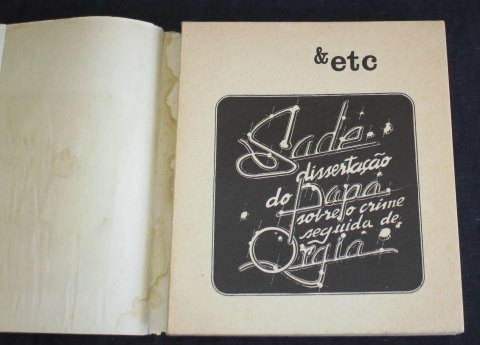 & etc
Sade
dissertação
do Papa
sobre o crime
seguida de
Orgia